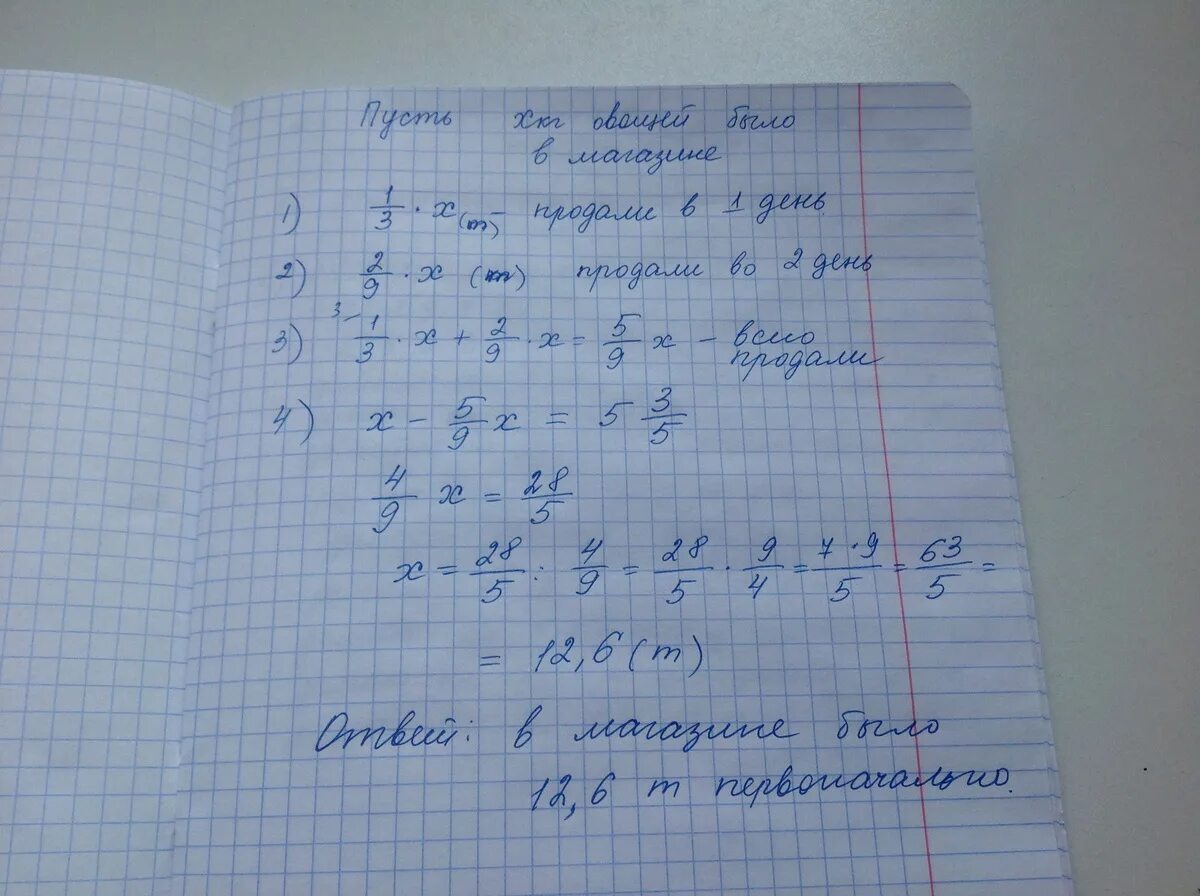 Пусть х кг овощей было
в магазине
1) 1/3 · х (т) – продали в 1 день
2) 2/9 · х (т) продали во 2 день
3) 3– 1/3 · х + 2/9 · х = 5/9 х – всего
продали
4) х – 5/9 х = 5 3/5
4/9 х = 28/5
х = 28/5 : 4/9 = 28/5 · 9/4 = 7·9/5 = 63/5 =
= 12,6 (т)
Ответ: в магазине было
12,6 т первоначально.